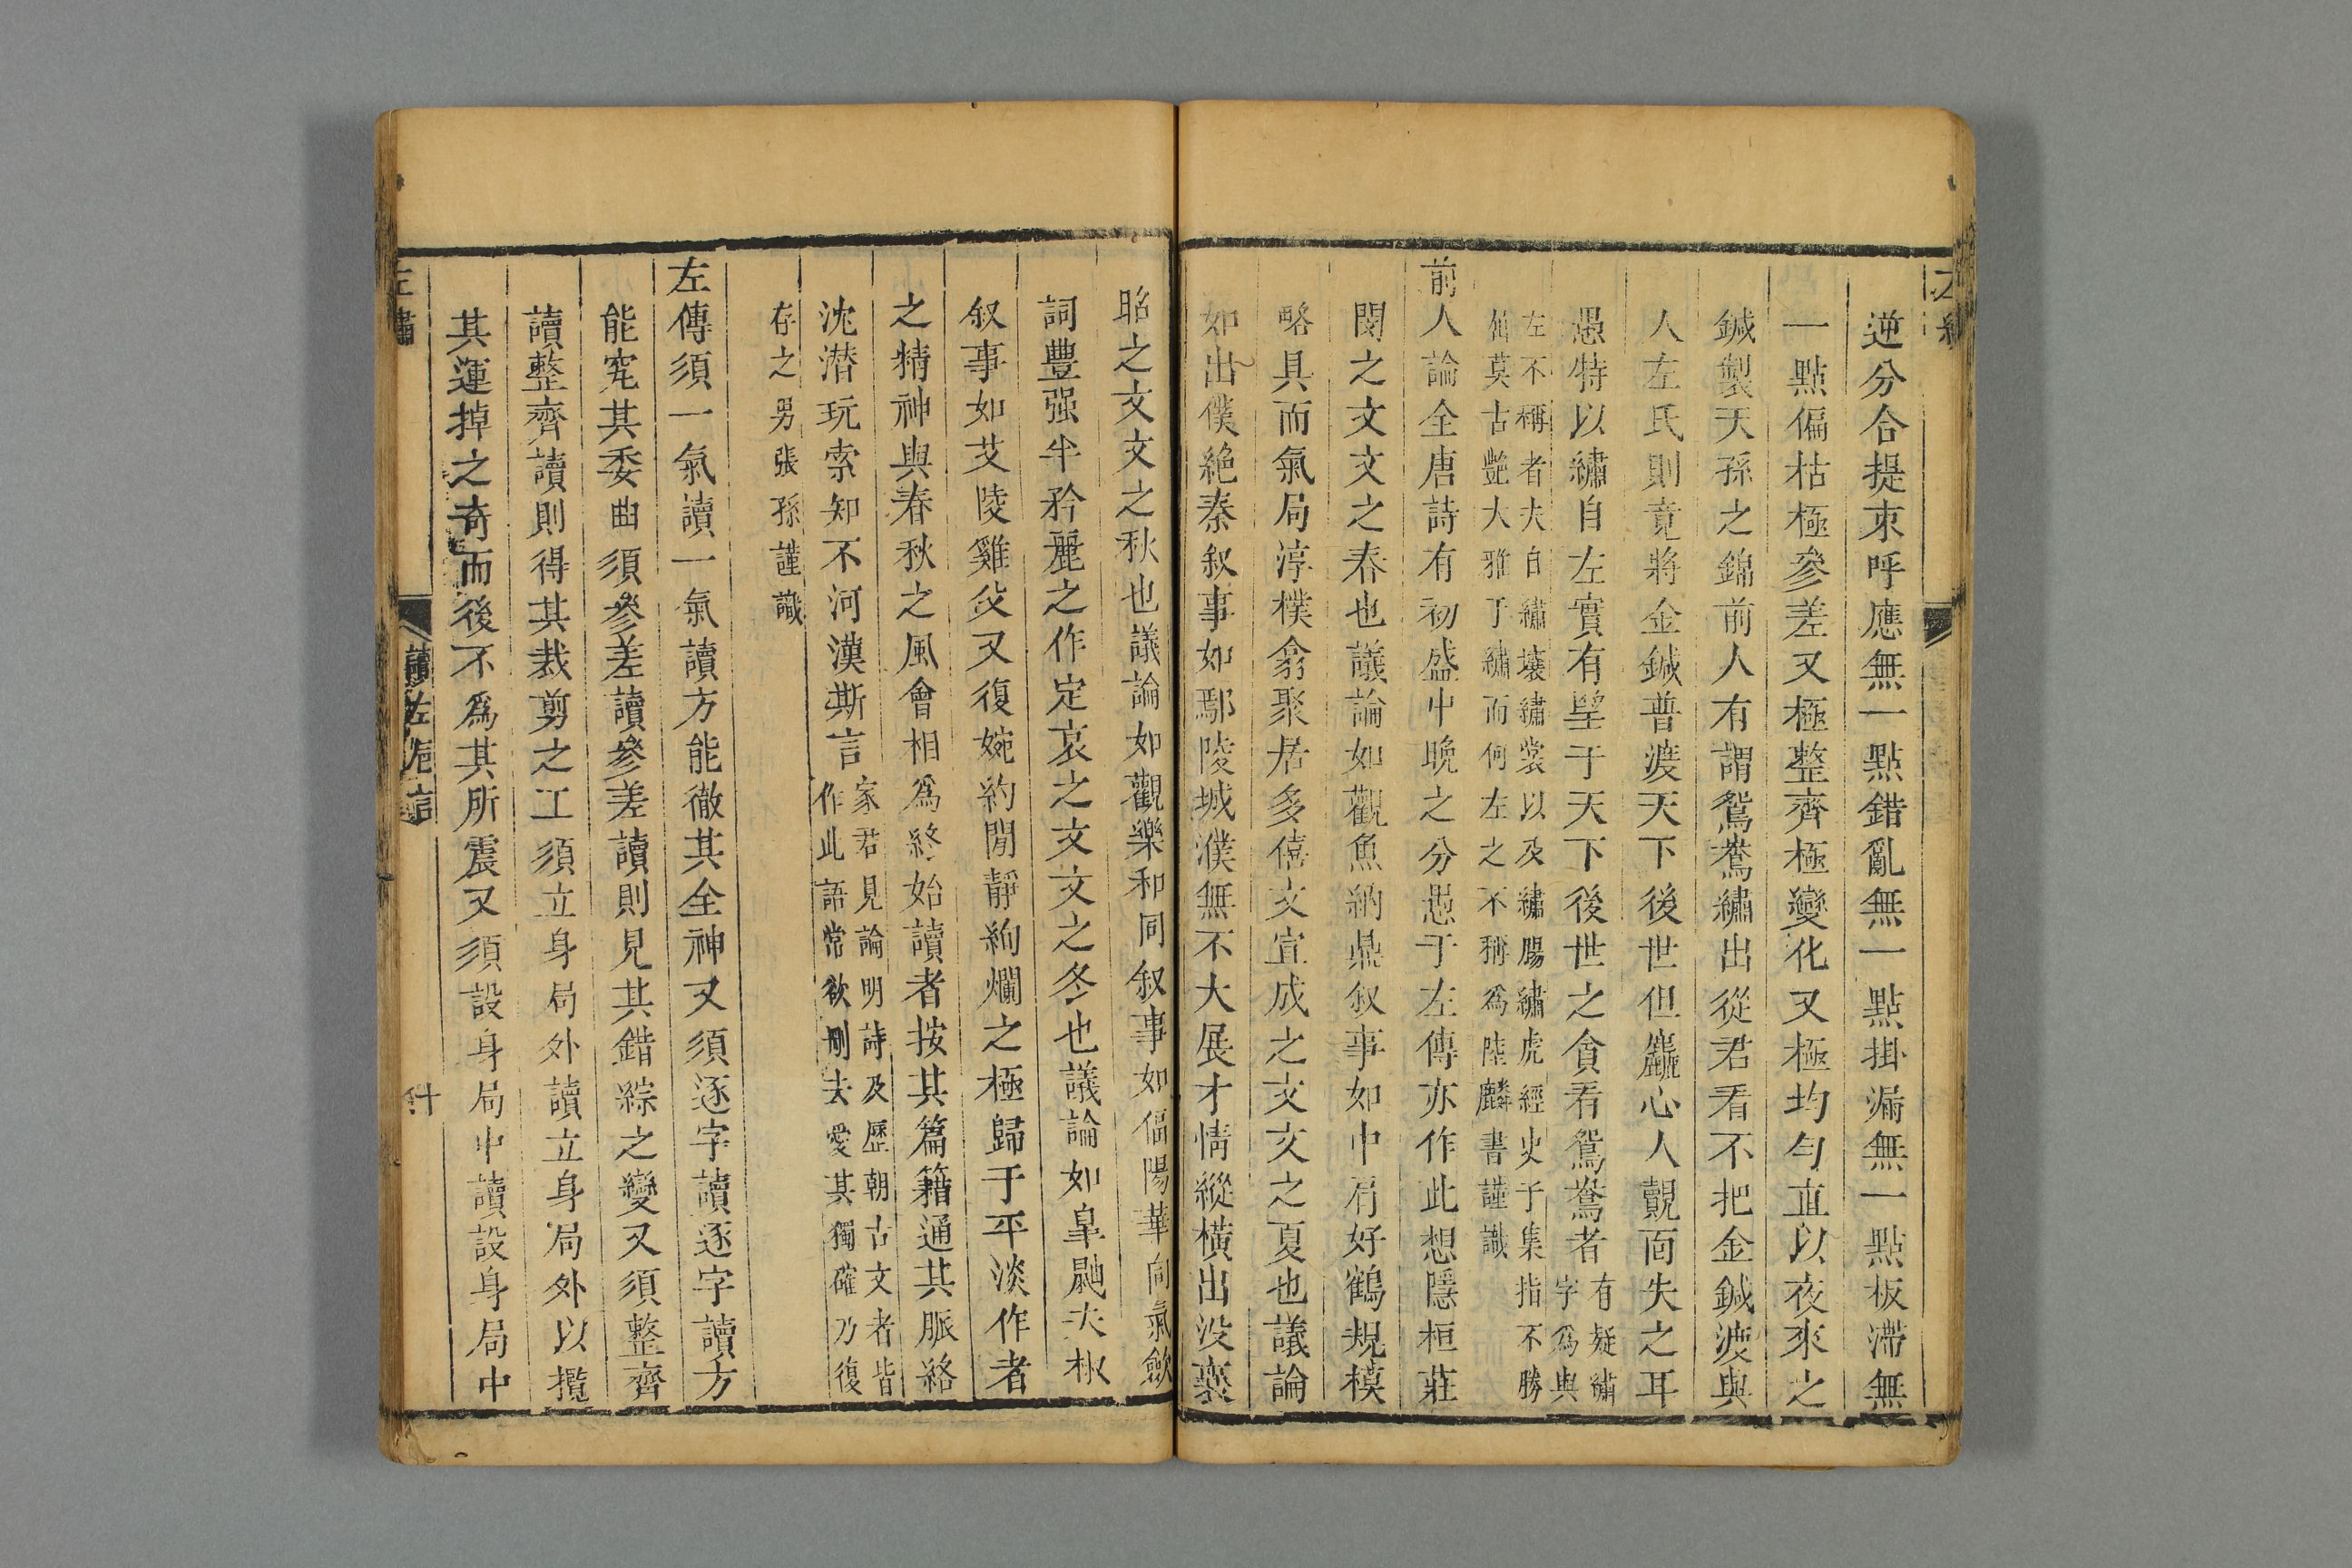 逆分合提束呼應無一點錯亂無一點掛漏無一點板滯無
一點偏枯極參差又極整齊極變化又極均勻直以夜來之
鍼製天孫之錦前人有謂鴛鴦繡出從君看不把金鍼渡與
人左氏則竟將金鍼普渡天下後世但麤心人覿面失之耳
愚特以繡自左實有望于天下後世之貪看鴛鴦者
有疑繡
字爲與
左不稱者夫自繡壤繡裳以及繡腸繡虎經史子集指不勝
僂莫古艷大雅于繡而何左之不稱爲陸麟書謹識
前人論全唐詩有初盛中晚之分愚于左傳亦作此想隱桓莊
閔之文文之春也議論如觀魚納鼎叙事如中肩好鶴規模
略具而氣局淳樸翕聚居多僖文宣成之文文之夏也議論
如出僕絶秦叙事如鄢陵城濮無不大展才情縱橫出没襄
昭之文文之秋也議論如觀樂和同叙事如偪陽華向氣斂
詞豐强半矜麗之作定哀之文文之冬也議論如臯鼬夫椒
叙事如艾陵雞父又復婉約閒靜絢爛之極歸于平淡作者
之精神與春秋之風會相爲終始讀者按其篇籍通其脈絡
沈潜玩索知不河漢斯言
家君見論明詩及歷朝古文者皆
作此語常欲刪去愛其獨確乃復
存之男張孫謹識
左傳須一氣讀一氣讀方能徹其全神又須逐字讀逐字讀方
能究其委曲須參差讀參差讀則見其錯綜之變又須整齊
讀整齊讀則得其裁剪之工須立身局外讀立身局外以攬
其運掉之奇而後不爲其所震又須設身局中讀設身局中
左繡
讀左卮言
十